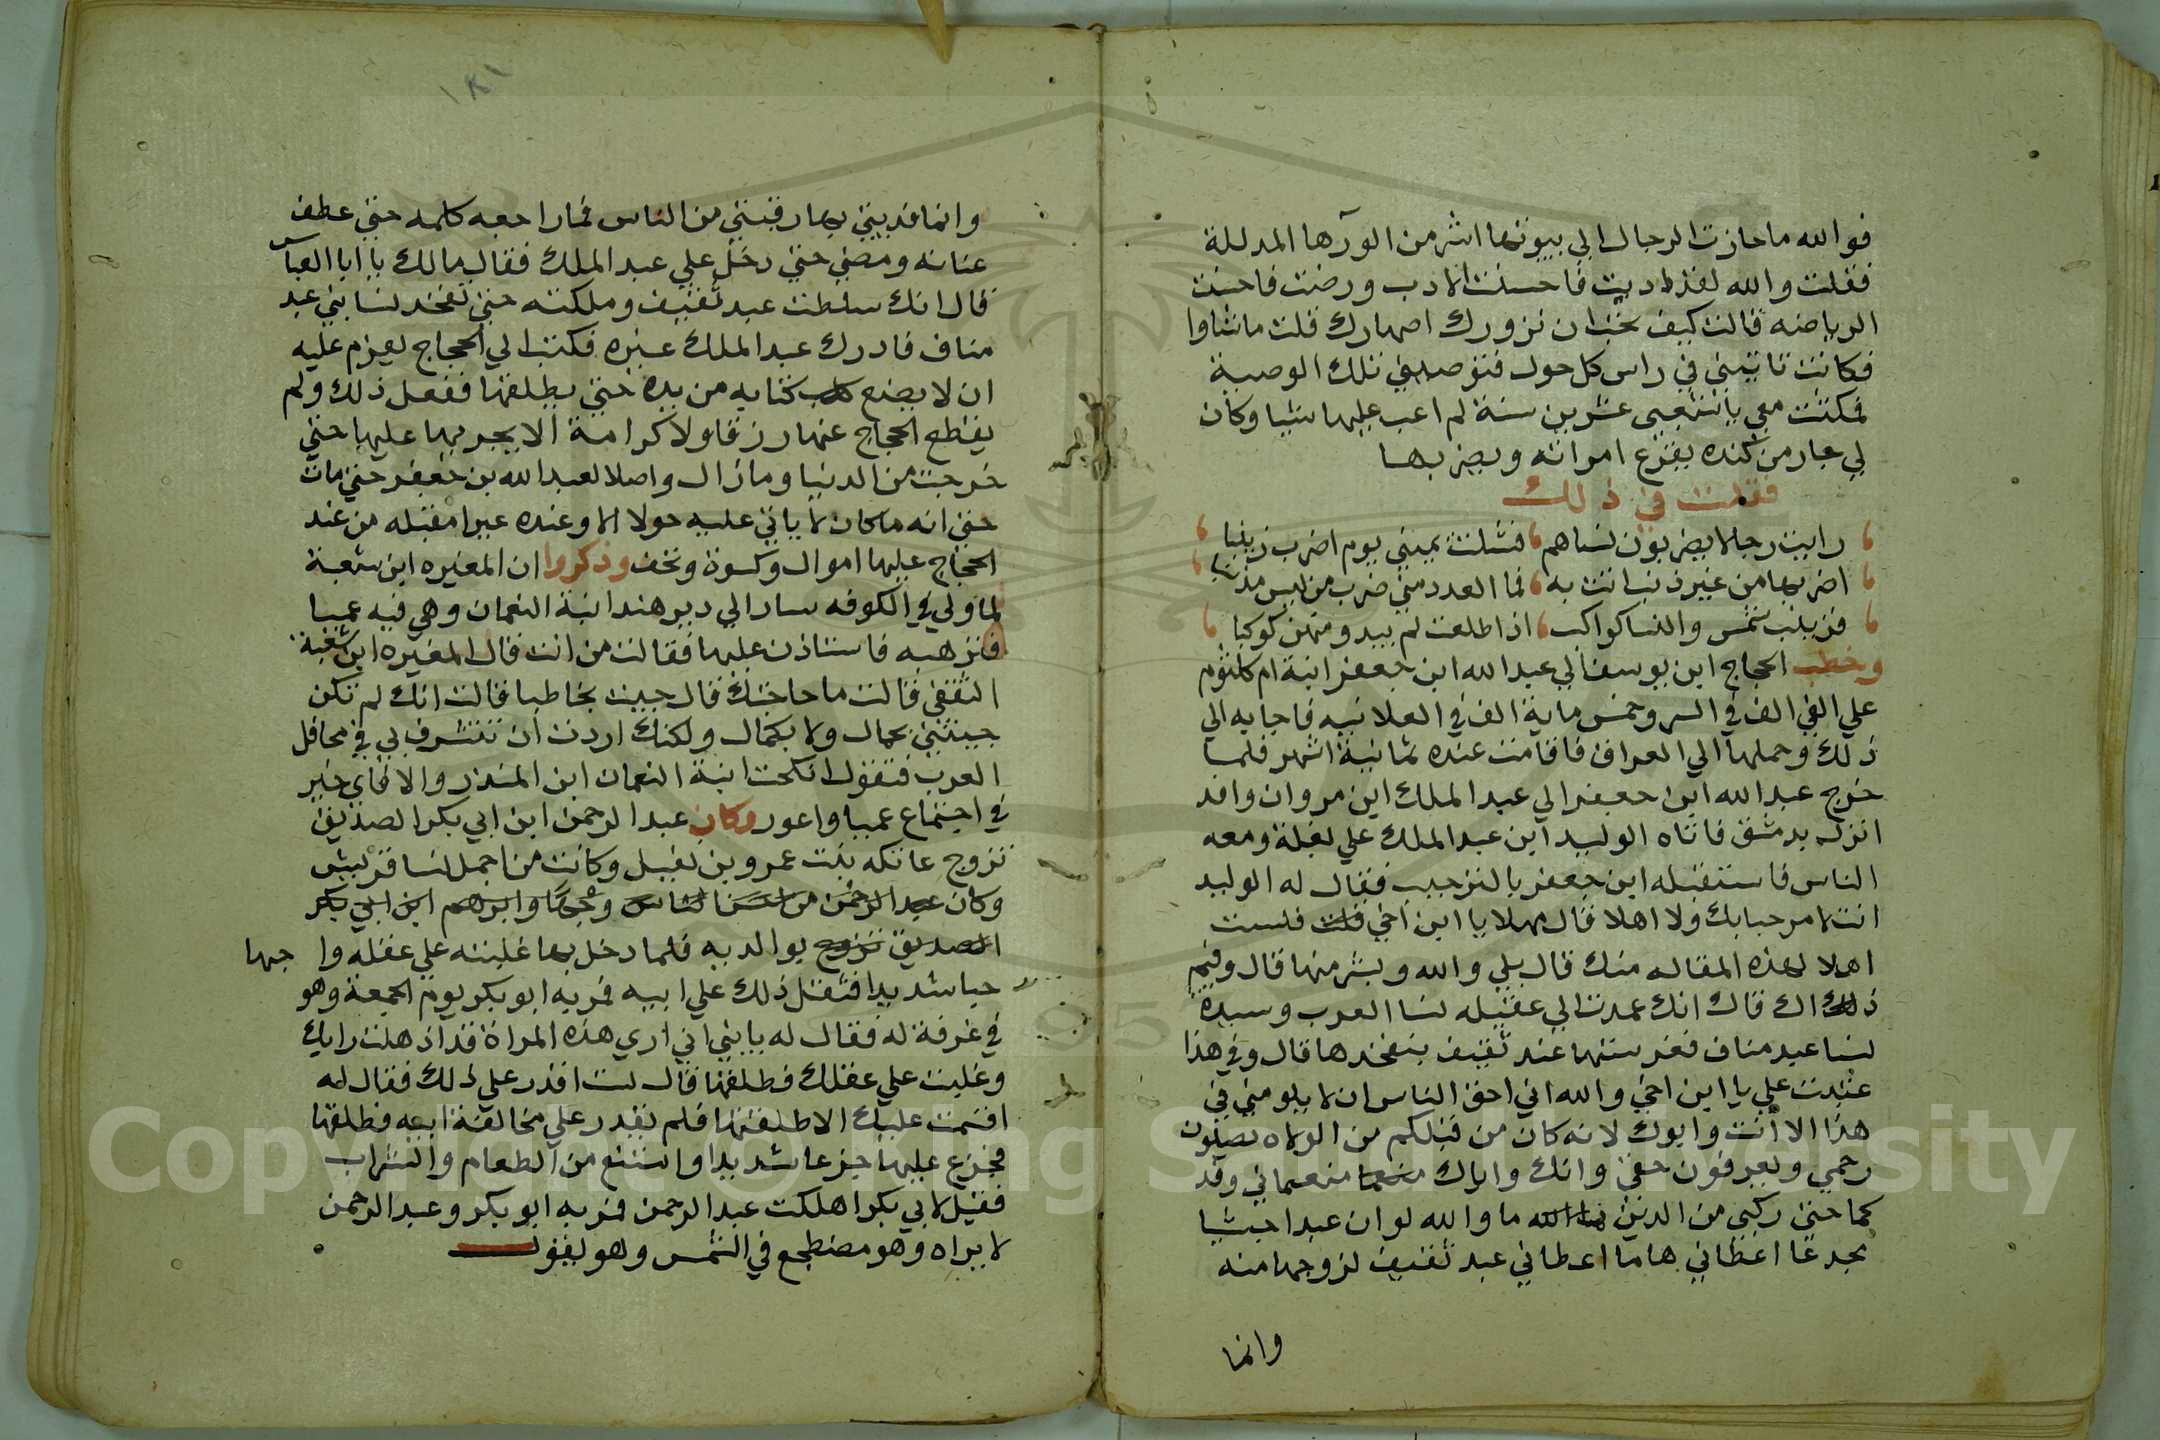 فوالله ما حازت الرجال الي بيوتها اشر من الورها المدللة
فقلت والله لقد ادبت فاحسنت الادب ورضت فاحسنت
الرياضه قالت كيف تحب ان تزورك اصهارك قلت ماشاوا
فكانت تاتيني في راس كل حول فتوصيني تلك الوصية
فمكثت معي يا شعبي عشرين سنة لم اعب عليها شيا وكان
لي جار من كنده يفزع امراته ويضربها
فقلت في ذلك
رايت رجالا يضربون نساهم فشلت يميني يوم اضرب زينبا
اضربها من غير ذنب اتت به فما العدد مني ضرب من ليس مذنبا
فزينب شمس والنسا كواكب اذا طلعت لم يبد منهن كوكبا
وخطب الحجاج ابن يوسف الي عبد الله ابن جعفر ابنة ام كلثوم
علي الفي الف في السر وخمس ماية الف في العلانيه فاجابه الي
ذلك وحملها الي العراق فاقامت عنده ثمانية اشهر فلما
خرج عبد الله ابن جعفر الي عبد الملك ابن مروان وافد
انزله بدمشق فاتاه الوليد ابن عبد الملك علي بغلة ومعه
الناس فاستقبله ابن جعفر بالترحيب فقال له الوليد
انت لا مرحبا بك ولا اهلا قال مهلا يا ابن اخي فلست
اهلا لهذه المقاله منك قال بلي والله وبشر منها قال وفيم
ذاك قال انك عمدت الي عقيله نسا العرب وسيدة
نسا عبد مناف فعرستها عند ثقيف يتفخدها قال وفي هذا
عتبت علي يا ابن اخي والله اني احق الناس ان لا يلومني في
هذا الا انت وابوك لانه كان من قبلكم من الولاه يصلون
رحمي ويعرفون حقي وانك واباك منعتماني وقد
كما حتي ركبي من الدين اما والله لو ان عبدا حبشيا
مجدعا اعطاني بها ما اعطاني عبد ثقيف لزوجها منه
وانما
١٨١
وانما فديتي بها رقبتي من الناس فما راجعه كلمه حتي عطف
عنانه ومضي حتي دخل علي عبد الملك فقال مالك يا ابا العباس
قال انك سلطت عبد ثقيف وملكته حتي تفخد نسا بني عبد
مناف فادرك عبد الملك غيره فكتب الي الحجاج يعزم عليه
ان لا يضع كتابه من يده حتي يطلقها ففعل ذلك ولم
يقطع الحجاج عنها رزقا ولا كرامة الا يجريها عليها حتي
خرجت من الدنيا وما زال واصلا لعبد الله بن جعفر حتي مات
حتي انه ما كان لا ياتي عليه حولا الا وعنده عيرا مقبله من عند
الحجاج عليها اموال وكسوة وتحف وذكروا ان المغيره ابن شعبة
لما ولي في الكوفه سار الي دير هند ابنة النعمان وهي فيه عميا
مترهبه فاستاذن عليها فقالت من انت قال المغيره ابن شعبة
الثقفي قالت ما حاجتك قال جيت خاطبا قالت انك لم تكن
جيتني بجمال ولا بكمال ولكنك اردت ان تتشرف بي في محافل
العرب فتقول نكحت ابنة النعمان ابن المنذر والا فاي خير
في اجتماع عميا واعور وكان عبد الرحمن ابن ابي بكر الصديق
تزوج عاتكه بنت عمرو بن نفيل وكانت من اجمل نسا قريش
وكان عبد الرحمن من احسن الناس وجها وابرهم ابن ابي بكر
الصديق تزوج بوالديه فلما دخل بها غلبته علي عقله وا حبها
حبا شديدا فثقل ذلك علي ابيه فمر به ابو بكر يوم الجمعة وهو
في غرفة له فقال له يا بني اني اري هذه المراة قد اذهلت رايك
وغلبت علي عقلك فطلقها قال لست اقدر علي ذلك فقال له
اقسمت عليك الا طلقتها فلم يقدر علي مخالفة ابيه فطلقها
فجزع عليها جزعا شديدا وامتنع من الطعام والشراب
فقيل لابي بكر اهلكت عبد الرحمن فمر به ابو بكر وعبد الرحمن
لا يراه وهو مضطجع في الشمس وهو يقول
Copyright © King Saud University